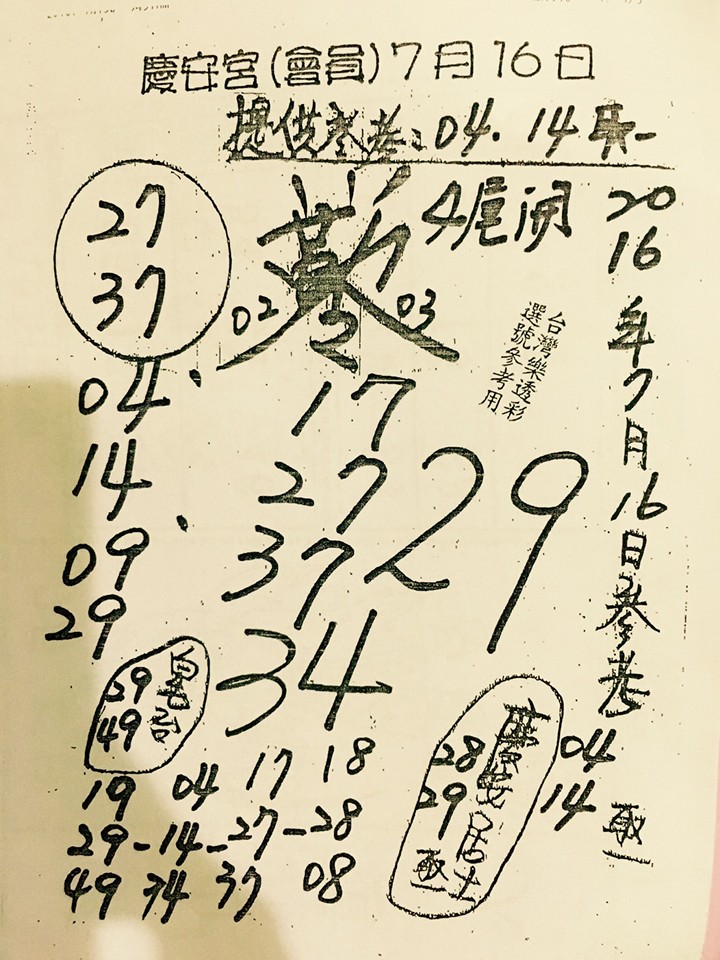 慶安宮(會員)7月16日
提供參考: 04. 14
27
37
02 03
4尾開
2016年7月16日參考
台灣樂透彩
選號參考用
04
14
09
29
17
27
37
34
29
39
49
19 04 17 18
29-14-27-28
49 34 37 08
慶安居士
28
29
04
14